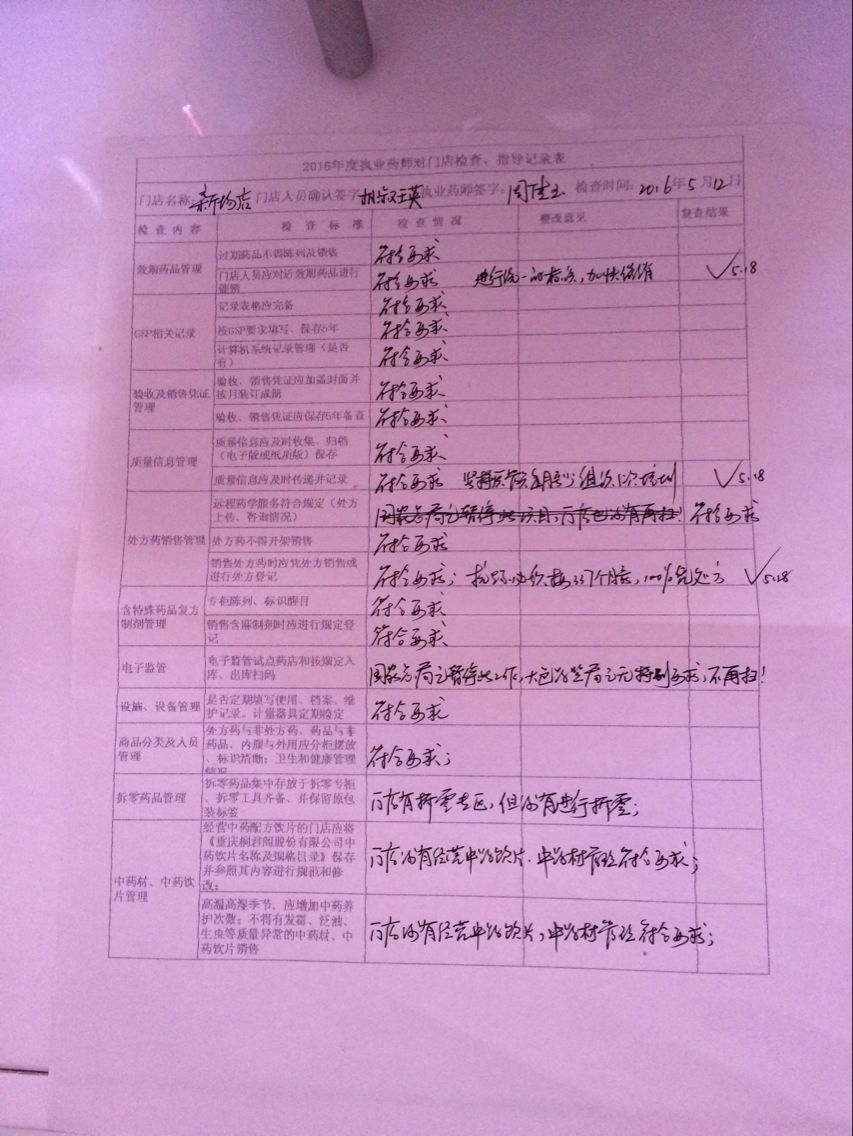 2016年度执业药师对门店检查、指导记录表
门店名称: 门店人员确认签字: 胡淑英 执业药师签字: 检查时间: 2016年5月12日
检查内容 检查标准 检查情况 整改意见 复查结果
效期药品管理
过期药品不得陈列及销售 符合要求
门店人员应对近效期药品进行催销 符合要求 进行统一的 加快催销 √5.18
GSP相关记录
记录表格应完备 符合要求
按GSP要求填写、保存5年 符合要求
计算机系统记录管理（是否有） 符合要求
验收及销售凭证管理
验收、销售凭证应加盖封面并按月装订成册 符合要求
验收、销售凭证应保存5年备查 符合要求
质量信息管理
质量信息应及时收集、归档（电子版或纸质版）保存 符合要求
质量信息应及时传递并记录 符合要求 组织 培训 √5.18
处方药销售管理
远程药学服务符合规定（处方上传、咨询情况） 符合要求
处方药不得开架销售 符合要求
销售处方药时应凭处方销售或进行处方登记 符合要求; 100%凭处方 √5.18
含特殊药品复方制剂管理
专柜陈列、标识醒目 符合要求
销售含麻制剂时应进行规定登记 符合要求
电子监管
电子监管试点药店和按规定入库、出库扫码 国家总局已暂停此工作, 无特别要求, 不再扫!
设施、设备管理
是否定期填写使用、档案、维护记录。计量器具定期检定 符合要求
商品分类及人员管理
处方药与非处方药、药品与非药品、内服与外用应分柜摆放、标识清晰；卫生和健康管理情况 符合要求;
拆零药品管理
拆零药品集中存放于拆零专柜、拆零工具齐备、并保留原包装标签 门店有拆零专区, 但没有进行拆零;
中药材、中药饮片管理
经营中药配方饮片的门店应将《重庆桐君阁股份有限公司中药饮片名称及规格目录》保存并参照其内容进行规范和修改; 门店没有经营中药饮片, 中药材管理符合要求;
高温高湿季节，应增加中药养护次数；不得有发霉、泛油、生虫等质量异常的中药材、中药饮片销售 门店没有经营中药饮片, 中药材管理符合要求;